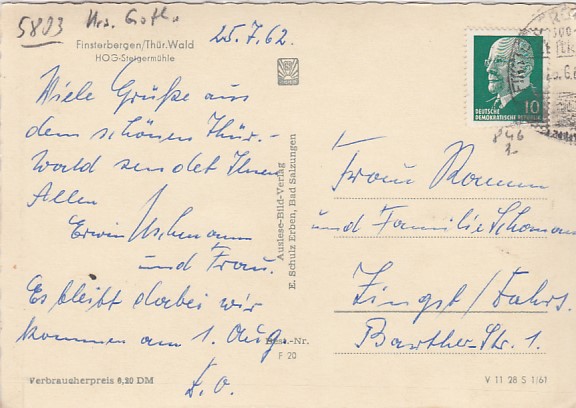 5803 Krs. Gotha
Finsterbergen/Thür.Wald
HOG-Steigermühle
25.7.62.
Viele Grüße aus
dem schönen Thür.-
Wald sendet Ihnen
Allen
Erwin
und Frau.
Es bleibt dabei wir
kommen am 1. Aug.
D. O.
Verbraucherpreis 0,20 DM
Auslese-Bild-Verlag
E. Schulz Erben, Bad Salzungen
Best.-Nr.
F 20
10
DEUTSCHE
DEMOKRATISCHE REPUBLIK
846
Frau
und Familie Schomann
Zingst/Dahrs.
Barther-Str. 1.
V 11 28 S 1/61